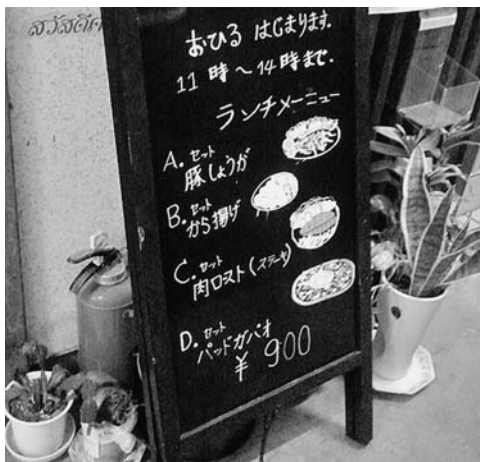 สวัสดีค
おひる はじまります.
11時～14時まで.
ランチメニュー
A. セット
豚しょうが
B. セット
から揚げ
C. セット
肉ロスト(ステーキ)
D. セット
パッドガパオ
¥ 900